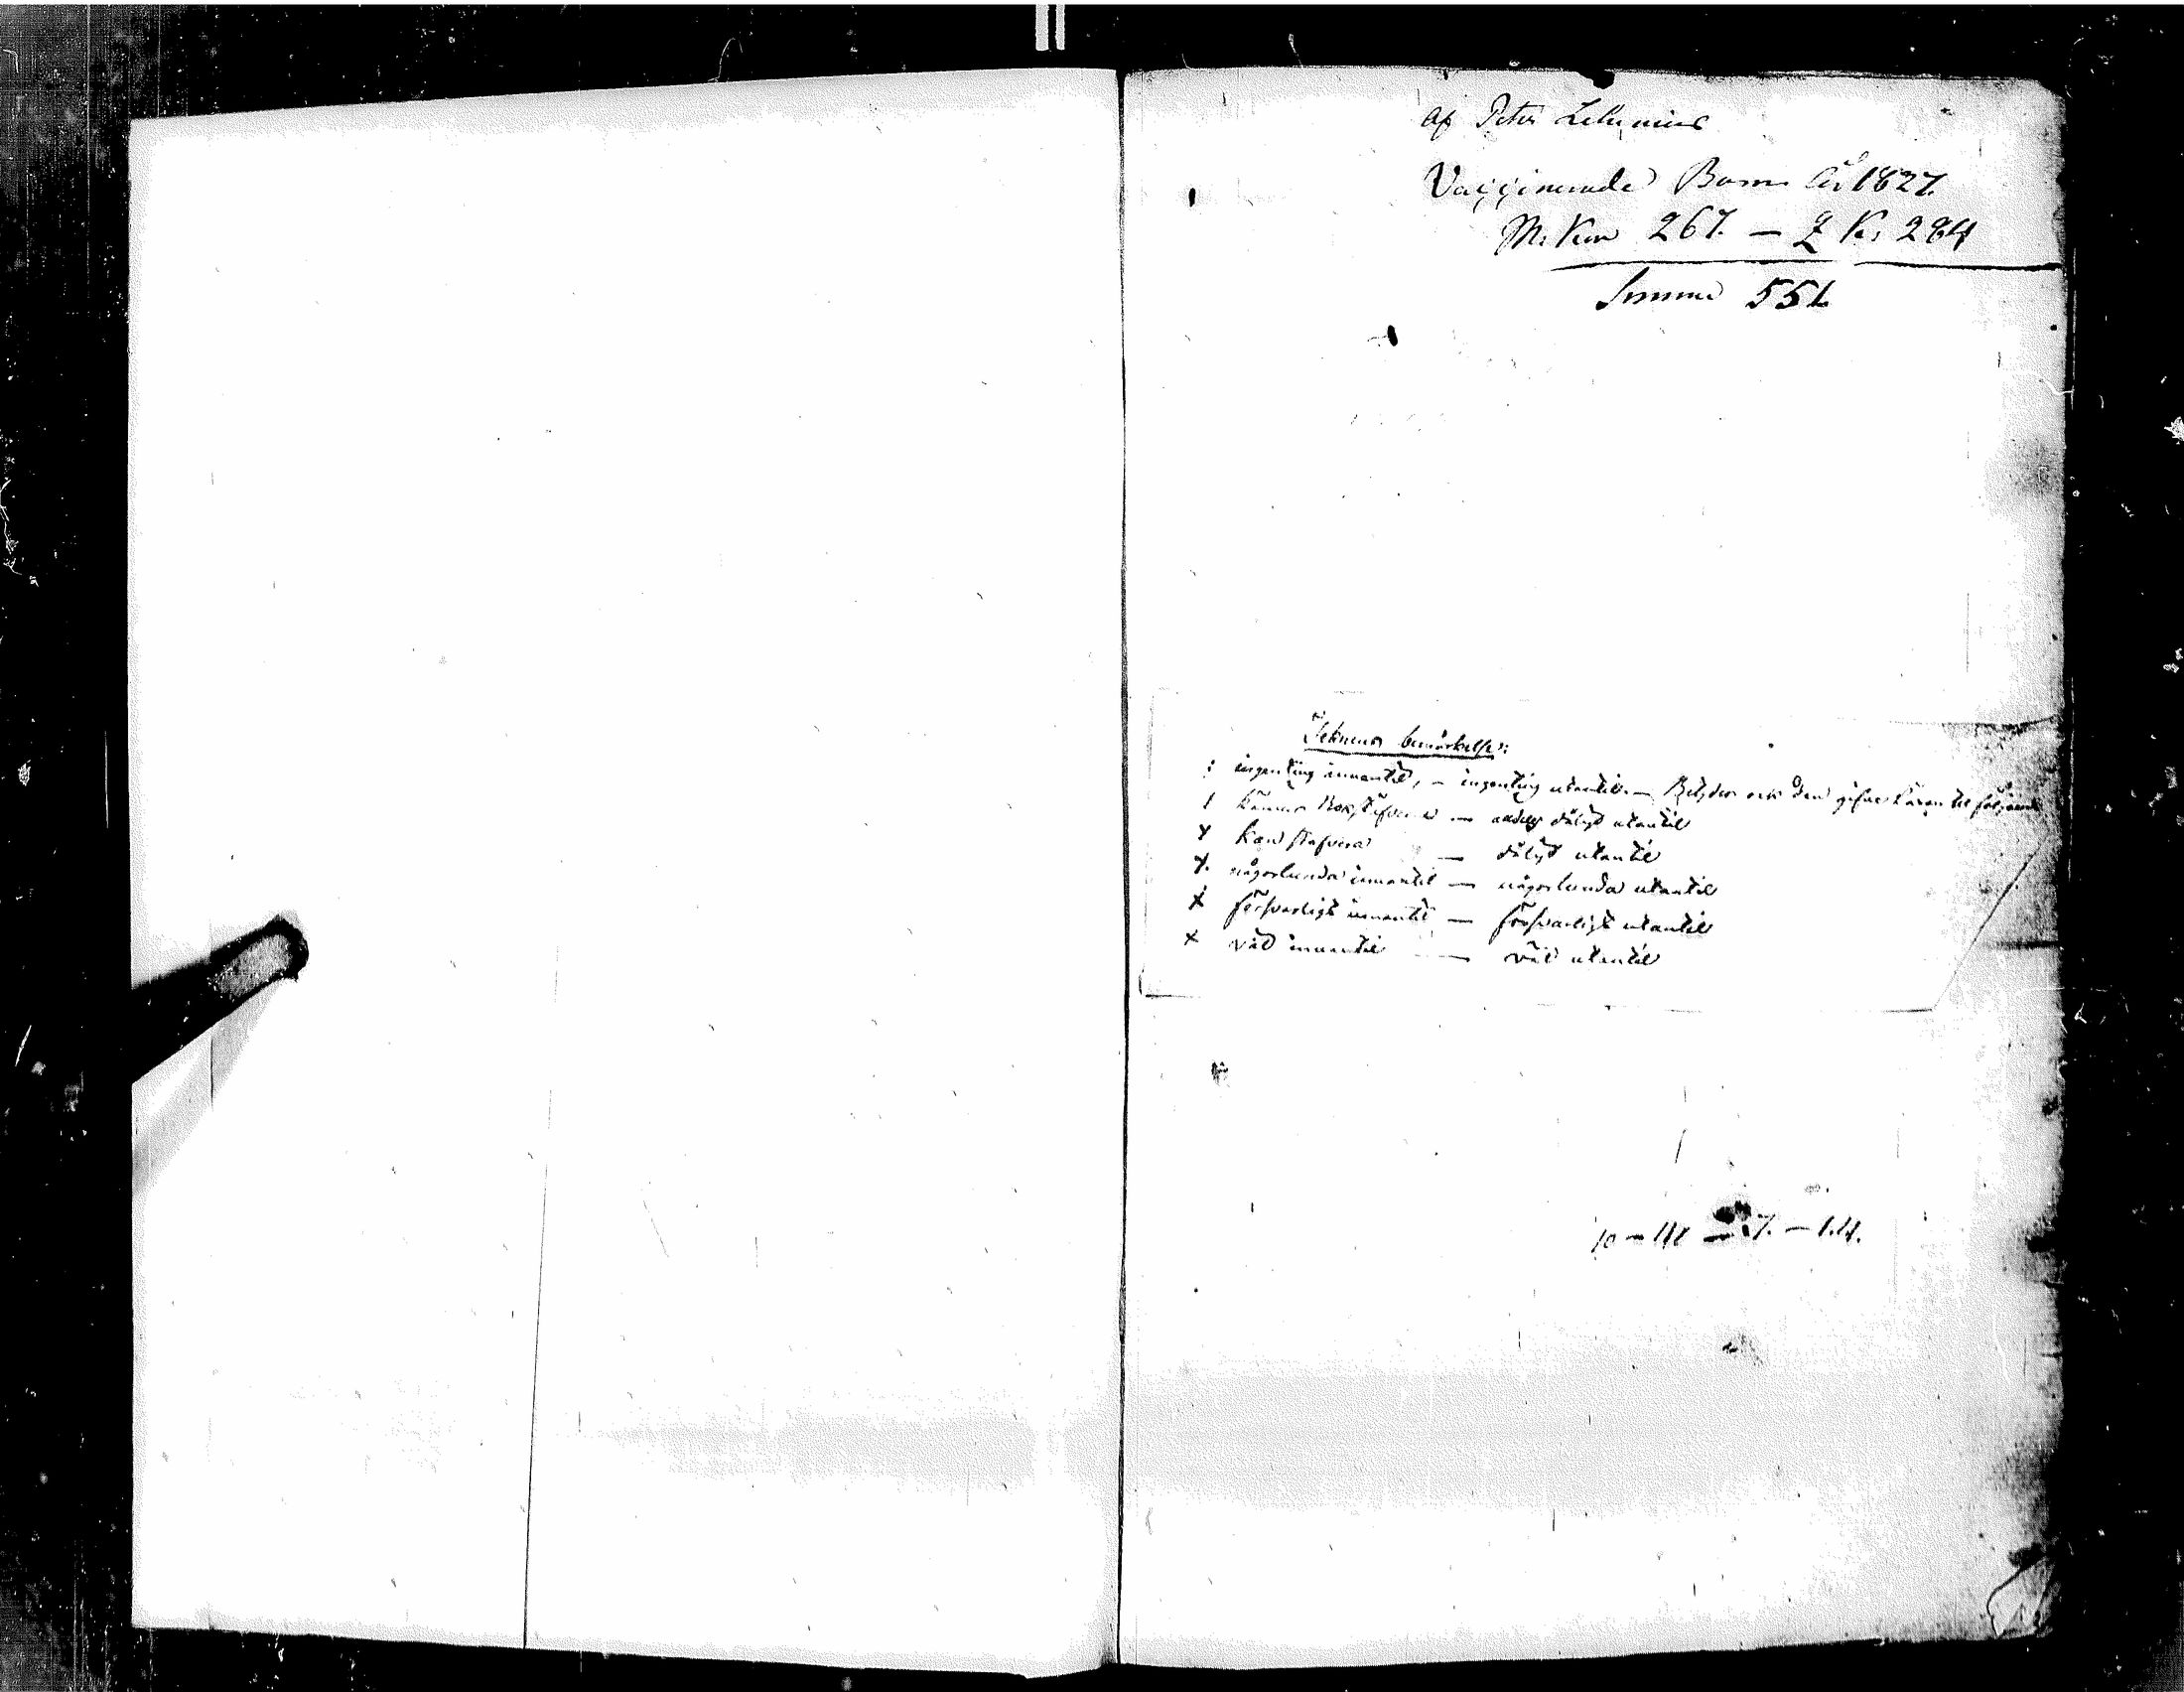 af Peter
Vaccinerade Barn År 1827.
M. Kön 267. — Q K. 284
Summa 551.
Teknens bemärkelse:
: ingenting innantil, — ingenting utantil. — Betyder ock den gifne
/ känner Bokstäfverna — dåligt utantil
Y kan stafva — dåligt utantil
Y. någorlunda innantil — någorlunda utantil
X försvarligt innantil — försvarligt utantil
X väl innantil — väl utantil